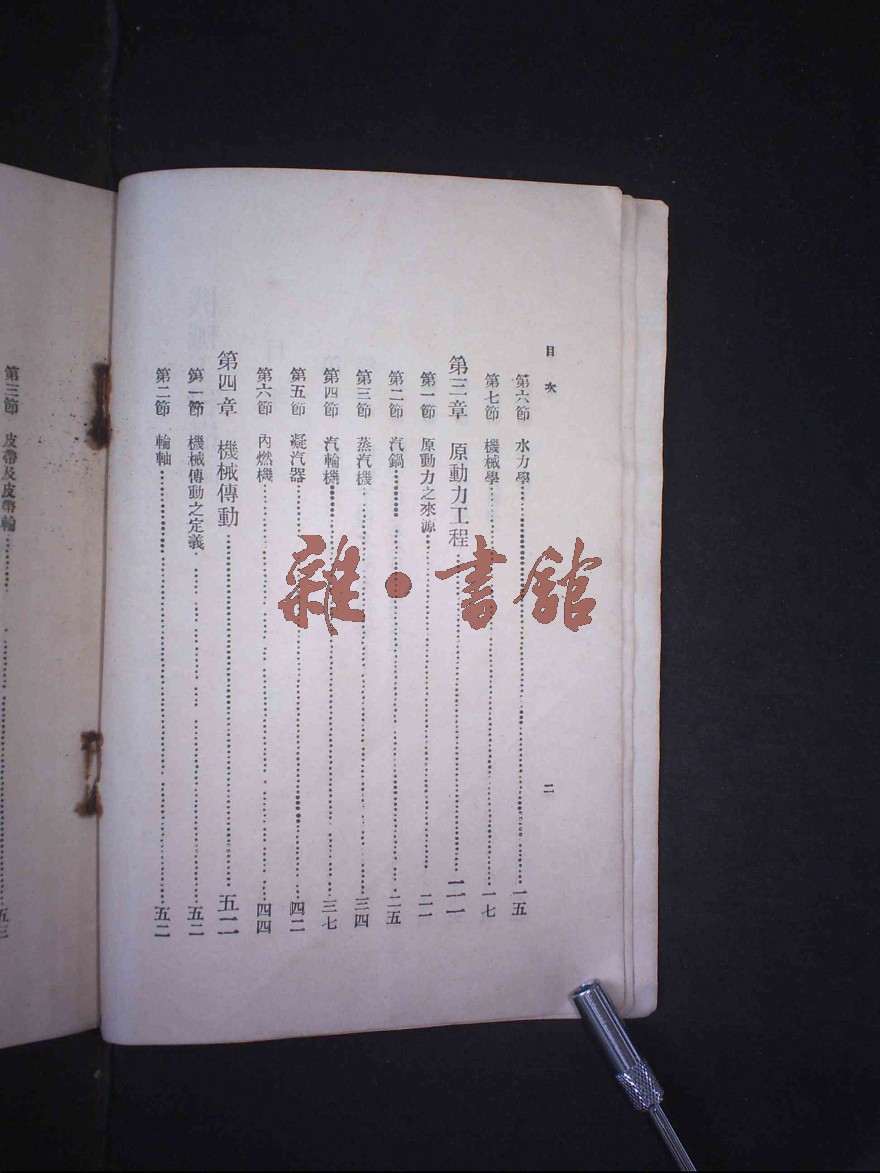 目次
二
第六節 水力學……一五
第七節 機械學……一七
第三章 原動力工程……二一
第一節 原動力之來源……二一
第二節 汽鍋……二五
第三節 蒸汽機……三四
第四節 汽輪機……三七
第五節 凝汽器……四二
第六節 內燃機……四四
第四章 機械傳動……五二
第一節 機械傳動之定義……五二
第二節 輪軸……五二
第三節 皮帶及皮帶輪……五三
雜·書館